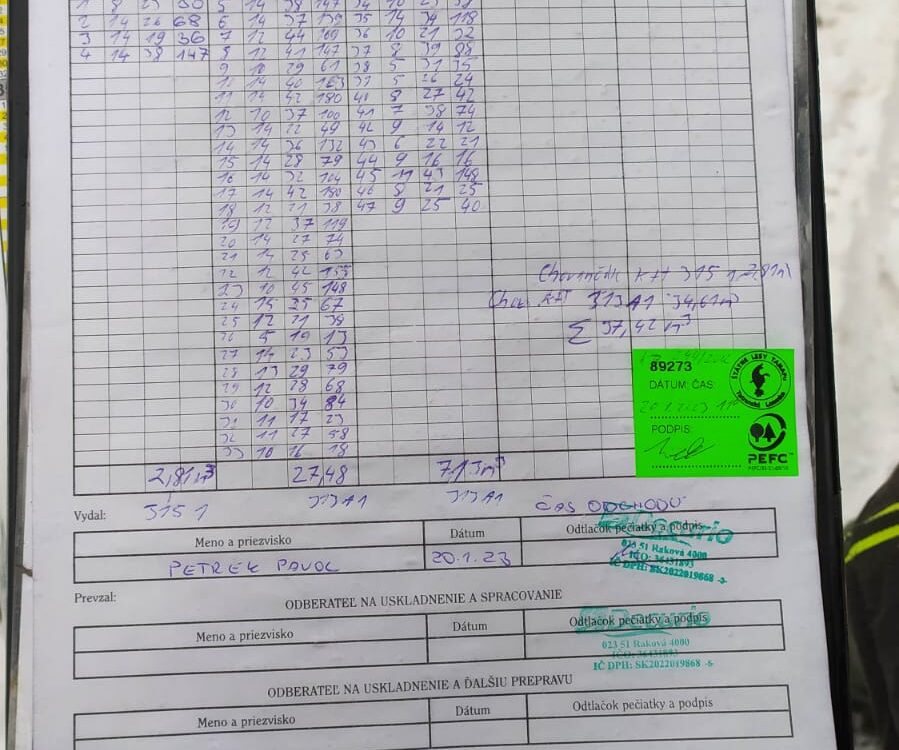 2 14 26 68 6 14 37 139 35 14 34 118
3 14 19 36 7 12 44 169 36 10 21 32
4 14 38 147 8 12 41 147 37 8 39 88
9 10 29 61 38 5 31 35
10 14 40 163 39 5 26 24
11 14 42 180 40 8 27 42
12 10 37 100 41 7 38 74
13 14 22 49 42 9 14 12
14 14 36 132 43 6 22 21
15 14 28 79 44 9 16 16
16 14 32 104 45 11 43 148
17 14 42 180 46 8 21 25
18 12 21 38 47 9 25 40
19 12 37 119
20 14 27 74
21 14 25 63
22 12 42 155
23 10 45 148
24 15 25 67
25 12 21 38
26 5 19 13
27 14 23 53
28 13 29 79
29 12 28 68
30 10 34 84
31 11 17 23
32 11 27 58
33 10 16 18
315 2,81m³
313A1 34,61m³
Σ 37,42 m³
89273
ŠTÁTNE LESY TANAPU
DÁTUM: ČAS:
20.1.2023
PODPIS:
PEFC
2,81m³ 27,48 7,13m³
315 1 313A1 313A1
ČAS ODCHODU
Vydal:
Meno a priezvisko Dátum Odtlačok pečiatky a podpis
PETREK PAVOL 20.1.23
023 51 Raková 4000
IČO: 36431893
IČ DPH: SK2022019868 -8-
Prevzal:
ODBERATEĽ NA USKLADNENIE A SPRACOVANIE
Meno a priezvisko Dátum Odtlačok pečiatky a podpis
023 51 Raková 4000
IČO: 36431893
IČ DPH: SK2022019868 -8-
ODBERATEĽ NA USKLADNENIE A ĎALŠIU PREPRAVU
Meno a priezvisko Dátum Odtlačok pečiatky a podpis